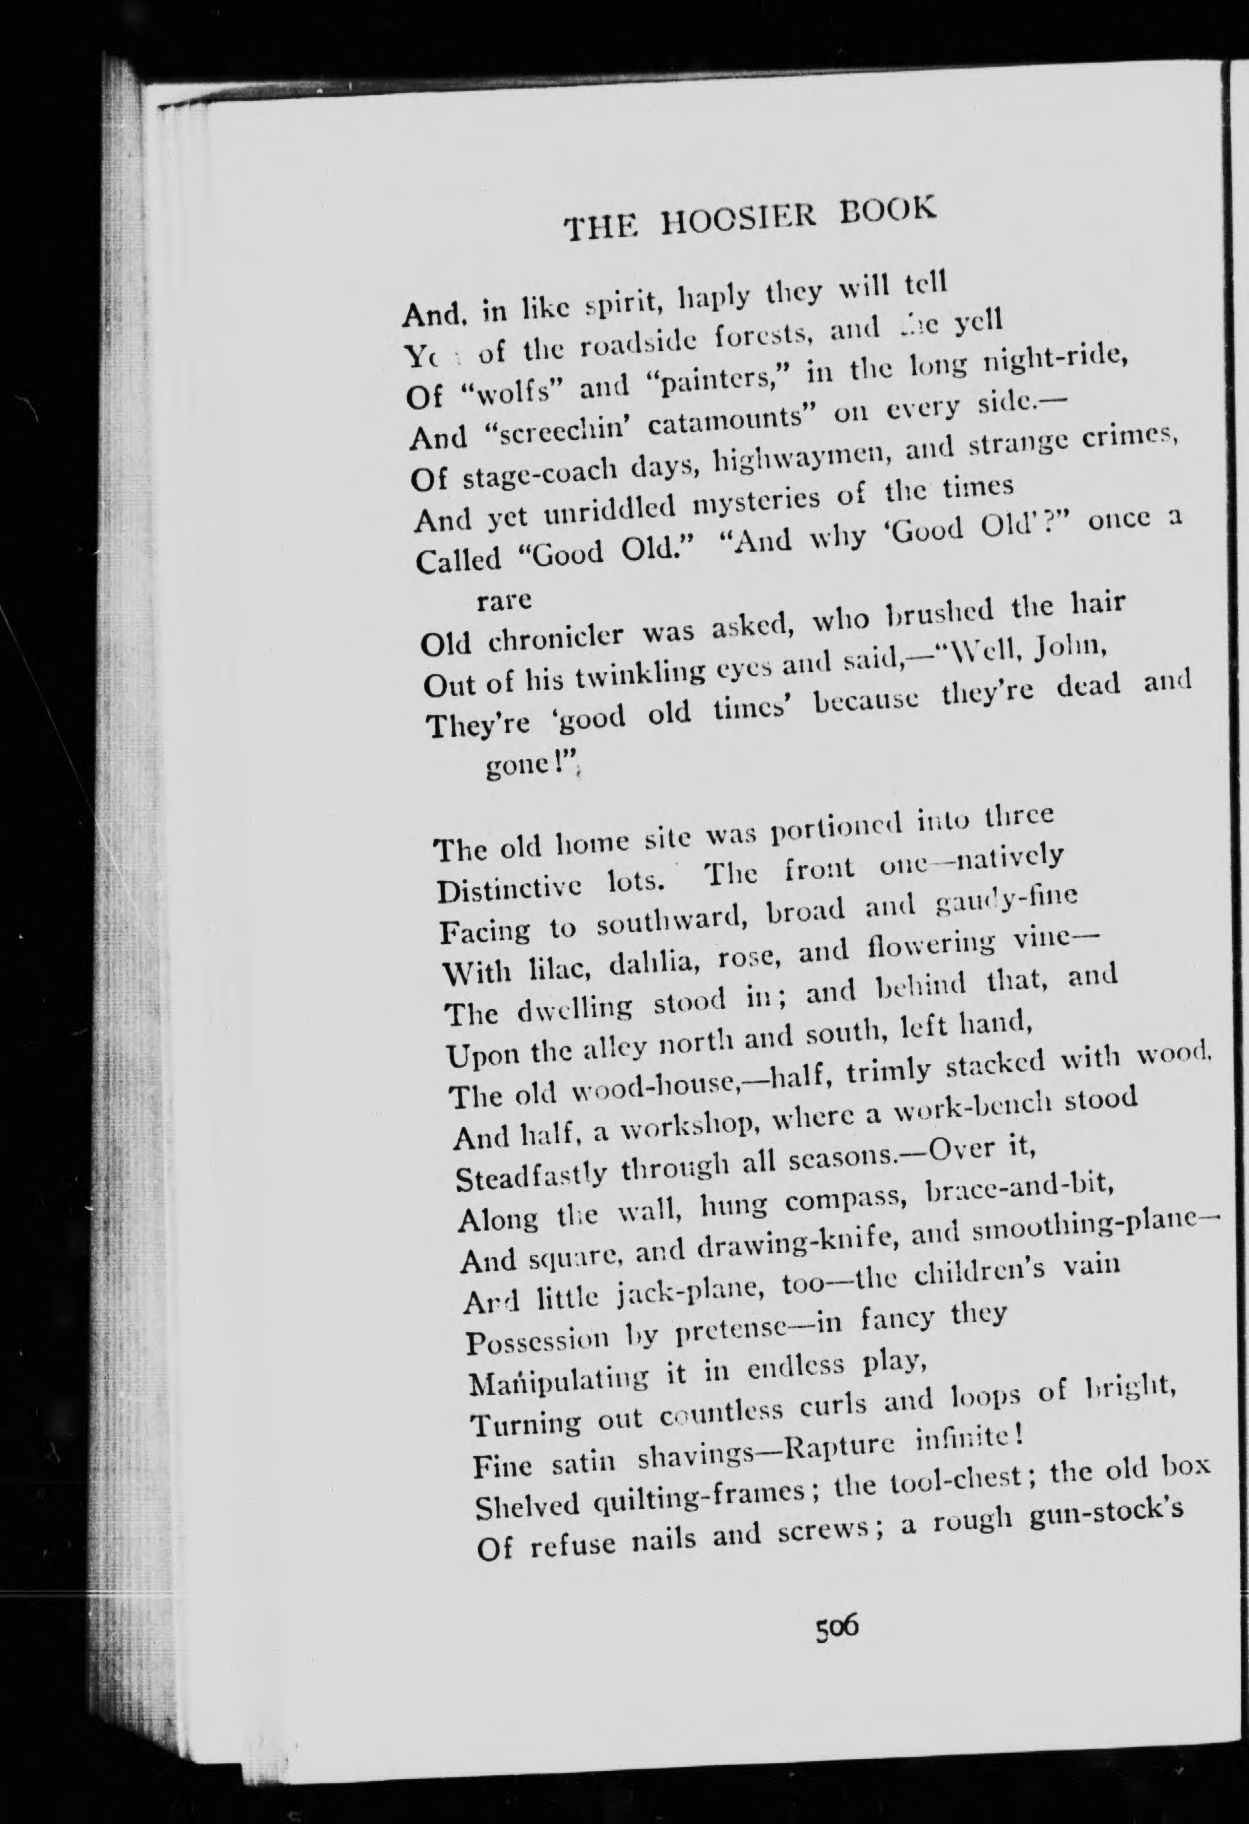 THE HOOSIER BOOK
And, in like spirit, haply they will tell
of the roadside forests, and the yell
Of “wolfs” and “painters,” in the long night-ride,
And “screechin’ catamounts” on every side.—
Of stage-coach days, highwaymen, and strange crimes,
And yet unriddled mysteries of the times
Called “Good Old.” “And why ‘Good Old’?” once a
rare
Old chronicler was asked, who brushed the hair
Out of his twinkling eyes and said,—“Well, John,
They’re ‘good old times’ because they’re dead and
gone!”
The old home site was portioned into three
Distinctive lots. The front one—natively
Facing to southward, broad and gaudy-fine
With lilac, dahlia, rose, and flowering vine—
The dwelling stood in; and behind that, and
Upon the alley north and south, left hand,
The old wood-house,—half, trimly stacked with wood,
And half, a workshop, where a work-bench stood
Steadfastly through all seasons.—Over it,
Along the wall, hung compass, brace-and-bit,
And square, and drawing-knife, and smoothing-plane—
And little jack-plane, too—the children’s vain
Possession by pretense—in fancy they
Manipulating it in endless play,
Turning out countless curls and loops of bright,
Fine satin shavings—Rapture infinite!
Shelved quilting-frames; the tool-chest; the old box
Of refuse nails and screws; a rough gun-stock’s
506